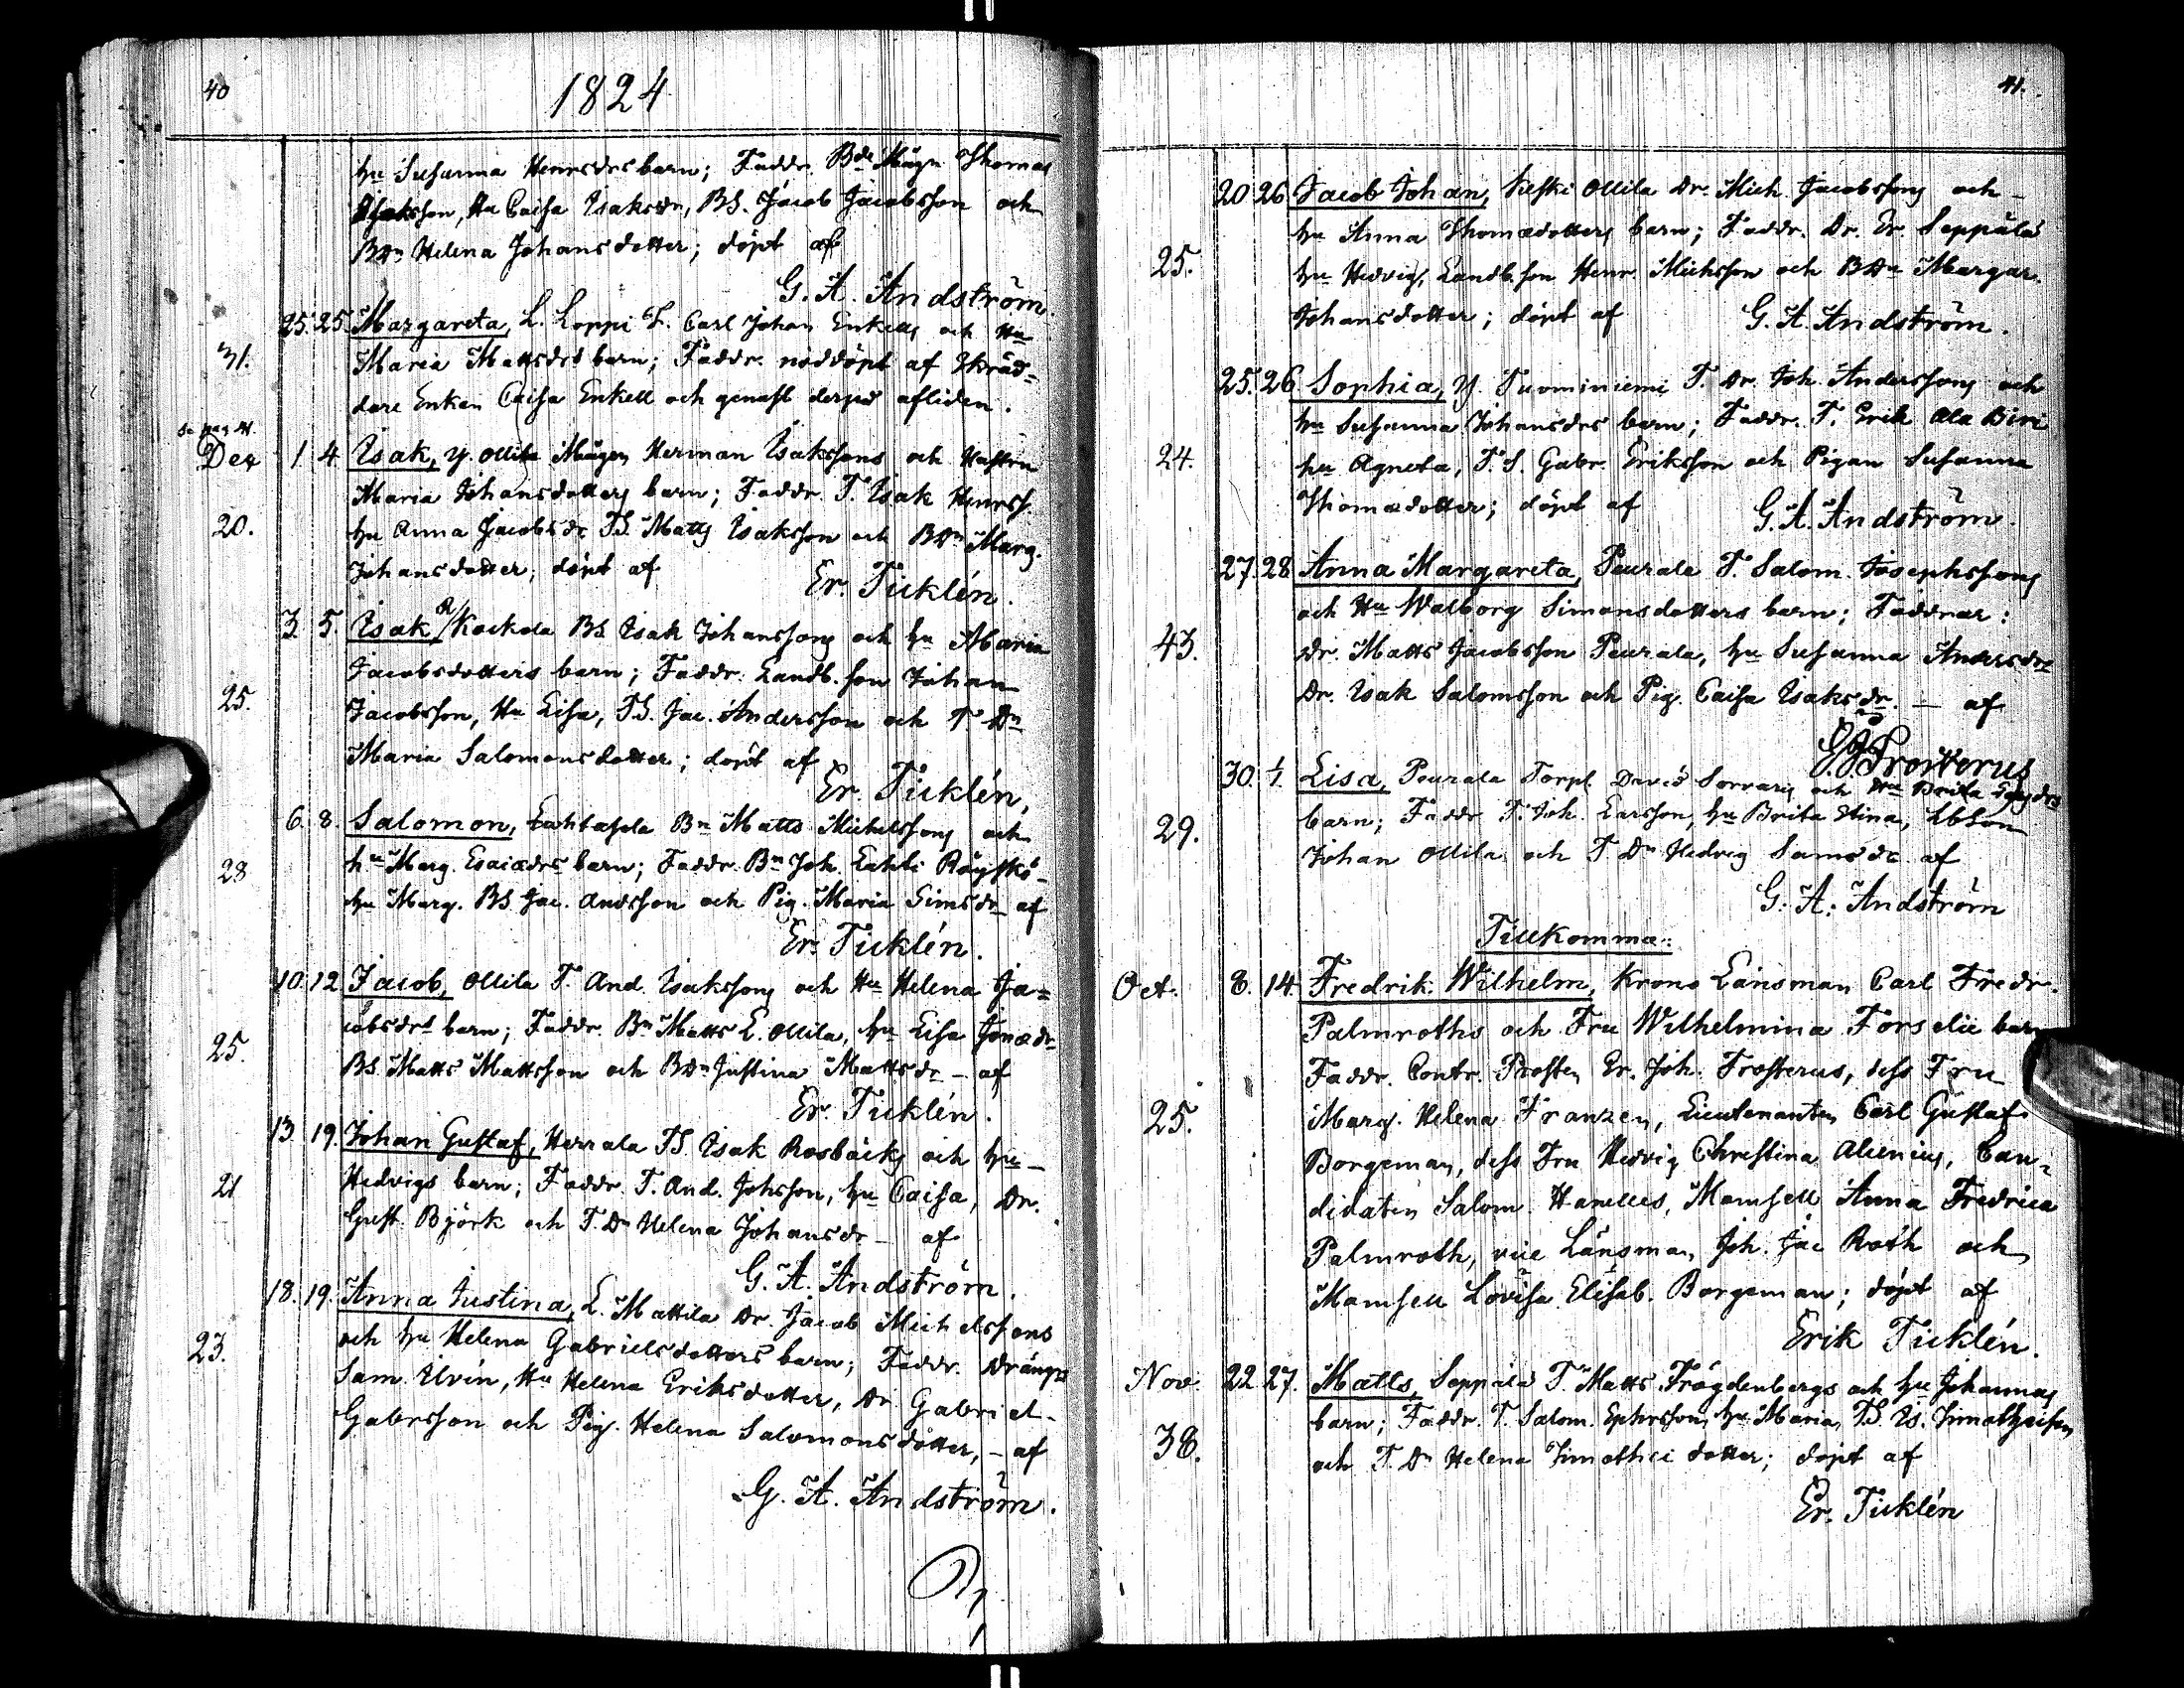 40
1824
hu Susanna Henrsdrs barn; Faddr. Bde Mågn Thomas
Isaksson, Hu Caisa Isaksdr, BS. Jacob Jacobsson och
BDn Helena Johansdotter; döpt af
G. A. Andström.
25. 25. Margareta, L. Loppi T. Carl Johan Enkells och Hu
31.
Maria Mattsdrs barn; Faddr. nöddöpt af Skräd=
dare Enkan Caisa Enkell och genast derpå afliden.
se pag 41.
Dec 1 4. Isak, Y. Ollila Mågen Herman Isakssons och Hustru
Maria Johansdotters barn; Faddr. T. Isak Henrss.
20.
hu Anna Jacobsdr TS. Matts Isaksson och BDn Marg.
Johansdotter; döpt af
Er. Ticklén.
3. 5. Isak, Kockela BS Isak Johanssons och hu Maria
Jacobsdotters barn; Faddr. Landb. son Johan
25.
Jacobsson, Hu Lisa, TS. Jac. Andersson och T. Dn
Maria Salomonsdotter; döpt af
Er. Ticklén,
6. 8. Salomon, Bn Matts Michelssons och
28
hu Marg. Esaiædrs barn; Faddr. Bn Joh. Lahti
hu Marg. BS Jac. Andsson och Pig. Maria Simsdr af
Er. Ticklén.
10. 12. Jacob, Ollila T. And. Isakssons och Hu Helena Ja=
25.
cobsdrs barn; Faddr. Bn Matts L. Ollila, hu Lisa Jonædr
BS. Matts Mattsson och BDn Justina Mattsdr – af
Er. Ticklén.
13. 19. Johan Gustaf, Herrala TS. Isak Rosbäcks och hu –
21
Hedvigs barn; Faddr. T. And. Johsson, hu Caisa, Dr.
Gust. Björk och T. Dn Helena Johansdr – af
G. A. Andström.
18. 19. Anna Justina, L. Mattila Dr. Jacob Michelssons
23.
och hu Helena Gabrielsdotters barn; Faddr. Drängn
Sam. Elvin, Hu Helena Eriksdotter, Dr. Gabriel
Gabrsson och Pig. Helena Salomonsdotter, – af
G. A. Andström.
41.
20 26. Jacob Johan, Ollila Dr. Mich. Jacobssons och –
hu Anna Thomædotters barn; Faddr. Dr. Er. Seppälä
25.
hu Hedvig, Landb. son Henr. Michsson och BDn Margar.
Johansdotter; döpt af G. A. Andström.
25. 26. Sophia, Y. Tuominiemi T. Dr. Joh. Anderssons och
hu Susanna Johansdrs barn; Faddr. T. Erik Ala Biri
24.
hu Agneta, T. S. Gabr. Eriksson och Pigan Susanna
Thomædotter; döpt af G. A. Andström.
27. 28. Anna Margareta, Peurala T. Salom. Josephssons
och Hu Walborg Simonsdotters barn; Faddrar:
43.
Dr. Matts Jacobsson Peurala, hu Susanna Andersdr
Dr. Isak Salomsson och Pig. Caisa Isaksdr. – af
Frosterus
30. 1/1. Lisa, Peurala Torpl. David Sorvaris och Hu Brita
29.
barn; Faddr. T. Joh. Larsson, hu Brita Stina, Lbson
Johan Ollila och T Dn Hedvig Samsdr af
G. A. Andström
Tillkomma:
Oct. 8. 14. Fredrik Wilhelm, Krono Länsman Carl Fredr.
Palmroths och Fru Wilhelmina Forselii barn
Faddr. Contr. Prosten Er. Joh. Frosterus, dess Fru
25.
Marg. Helena Franzen, Lieutenanten Carl Gustaf
Borgeman, dess Fru Hedvig Christina Alenius, Can=
didaten Salom. Hanelles, Mamsell Anna Fredrica
Palmroth, vice Länsman Joh. Jac Roth och
Mamsell Lovisa Elisab. Borgeman; döpt af
Erik Ticklén.
Nov. 22. 27. Matts, Seppälä T. Matts Frögdenbergs och hu Johannas
38.
barn; Faddr. T. Salom. Ephrsson, hu Maria, TS. Is. Timotheisson
och T. Dn Helena Timothei dotter; döpt af
Er. Ticklén